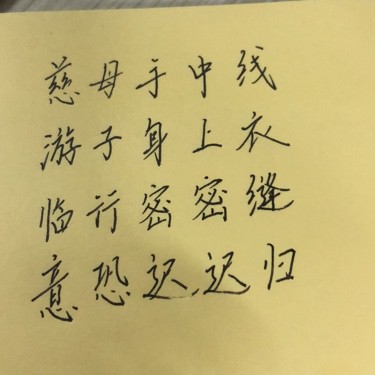 慈母手中线
游子身上衣
临行密密缝
意恐迟迟归